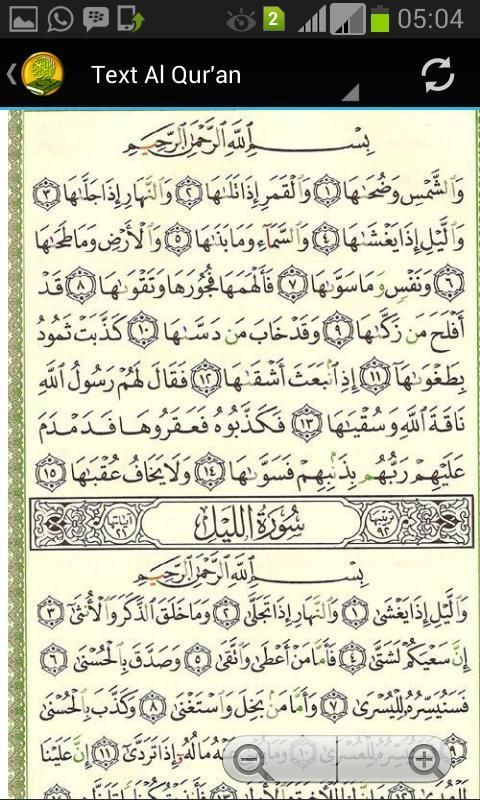 2 05:04
Text Al Qur'an
بِسْمِ اللَّهِ الرَّحْمَٰنِ الرَّحِيمِ
وَالشَّمْسِ وَضُحَىٰهَا ١ وَالْقَمَرِ إِذَا تَلَىٰهَا ٢ وَالنَّهَارِ إِذَا جَلَّىٰهَا ٣
وَالَّيْلِ إِذَا يَغْشَىٰهَا ٤ وَالسَّمَآءِ وَمَا بَنَىٰهَا ٥ وَالْأَرْضِ وَمَا طَحَىٰهَا
٦ وَنَفْسٍ وَمَا سَوَّىٰهَا ٧ فَأَلْهَمَهَا فُجُورَهَا وَتَقْوَىٰهَا ٨ قَدْ
أَفْلَحَ مَن زَكَّىٰهَا ٩ وَقَدْ خَابَ مَن دَسَّىٰهَا ١٠ كَذَّبَتْ ثَمُودُ
بِطَغْوَىٰهَآ ١١ إِذِ انۢبَعَثَ أَشْقَىٰهَا ١٢ فَقَالَ لَهُمْ رَسُولُ اللَّهِ
نَاقَةَ اللَّهِ وَسُقْيَٰهَا ١٣ فَكَذَّبُوهُ فَعَقَرُوهَا فَدَمْدَمَ
عَلَيْهِمْ رَبُّهُم بِذَنۢبِهِمْ فَسَوَّىٰهَا ١٤ وَلَا يَخَافُ عُقْبَٰهَا ١٥
ترتيبها ٩٢ سُورَةُ اللَّيْلِ آياتها
بِسْمِ اللَّهِ الرَّحْمَٰنِ الرَّحِيمِ
وَالَّيْلِ إِذَا يَغْشَىٰ ١ وَالنَّهَارِ إِذَا تَجَلَّىٰ ٢ وَمَا خَلَقَ الذَّكَرَ وَالْأُنثَىٰٓ ٣
إِنَّ سَعْيَكُمْ لَشَتَّىٰ ٤ فَأَمَّا مَنْ أَعْطَىٰ وَاتَّقَىٰ ٥ وَصَدَّقَ بِالْحُسْنَىٰ ٦
فَسَنُيَسِّرُهُ لِلْيُسْرَىٰ ٧ وَأَمَّا مَنۢ بَخِلَ وَاسْتَغْنَىٰ ٨ وَكَذَّبَ بِالْحُسْنَىٰ
٩ فَسَنُيَسِّرُهُ لِلْعُسْرَىٰ ١٠ وَمَا يُغْنِي عَنْهُ مَالُهُ إِذَا تَرَدَّىٰٓ ١١ إِنَّ عَلَيْنَا